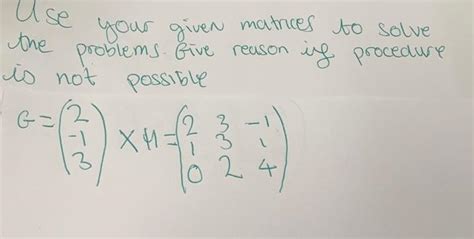 Use your given matrices to solve
the problems. Give reason if procedure
is not possible
G = (2 -1 3) X H = (2 3 -1
1 3 1
0 2 4)